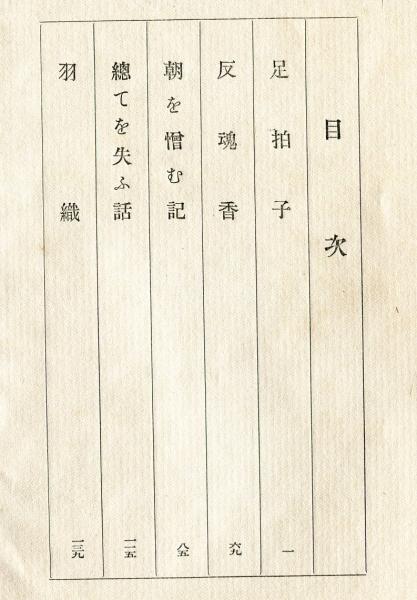 目次
足拍子 一
反魂香 六九
朝を憎む記 八五
總てを失ふ話 一一五
羽織 一三九